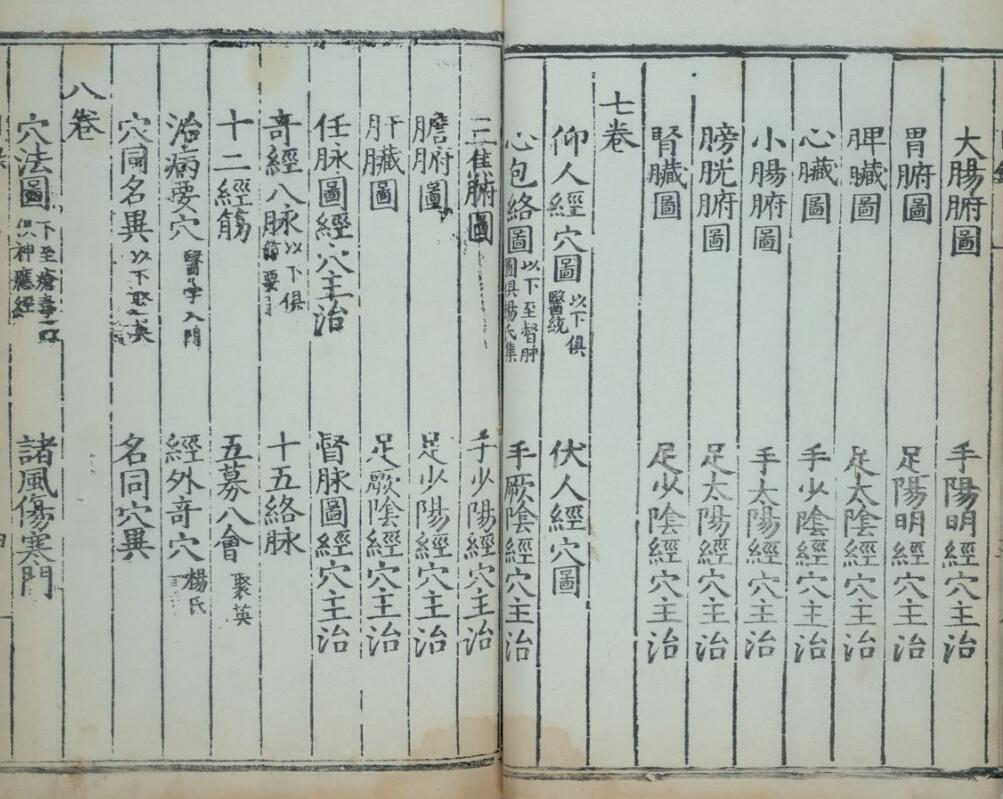 大腸腑圖 手陽明經穴主治
胃腑圖 足陽明經穴主治
脾臟圖 足太陰經穴主治
心臟圖 手少陰經穴主治
小腸腑圖 手太陽經穴主治
膀胱腑圖 足太陽經穴主治
腎臟圖 足少陰經穴主治
七卷
仰人經穴圖 以下俱醫統 伏人經穴圖
心包絡圖 以下至督脉圖俱楊氏集 手厥陰經穴主治
三焦腑圖 手少陽經穴主治
膽腑圖 足少陽經穴主治
肝臟圖 足厥陰經穴主治
任脉圖經穴主治 督脉圖經穴主治
奇經八脉 以下俱節要 十五絡脉
十二經筋 五募八會 聚英
治病要穴 醫學入門 經外奇穴 楊氏
穴同名異 以下聚英 名同穴異
八卷
穴法圖 下至瘡毒門俱神應經 諸風傷寒門